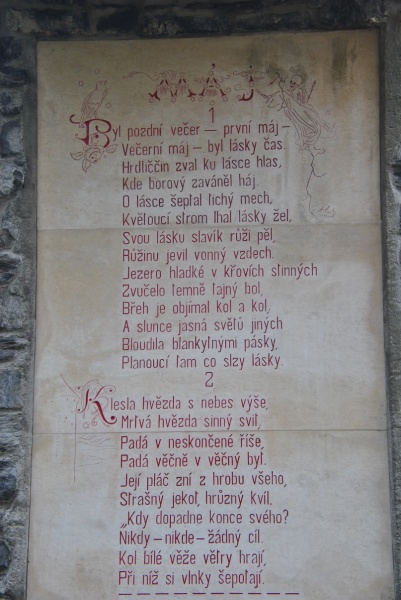 MÁJ
1
Byl pozdní večer – první máj –
Večerní máj – byl lásky čas.
Hrdliččin zval ku lásce hlas,
Kde borový zaváněl háj.
O lásce šeptal tichý mech,
Květoucí strom lhal lásky žel,
Svou lásku slavík růži pěl,
Růžinu jevil vonný vzdech.
Jezero hladké v křovích stinných
Zvučelo temně tajný bol,
Břeh je objímal kol a kol,
A slunce jasná světů jiných
Bloudila blankytnými pásky,
Planoucí tam co slzy lásky.
2
Klesla hvězda s nebes výše,
Mrtvá hvězda sinný svit,
Padá v neskončené říše,
Padá věčně v věčný byt.
Její pláč zní z hrobu všeho,
Strašný jekot, hrůzný kvil,
„Kdy dopadne konce svého?
Nikdy – nikde – žádný cíl.
Kol bílé věže větry hrají,
Při níž si vlnky šepotají.